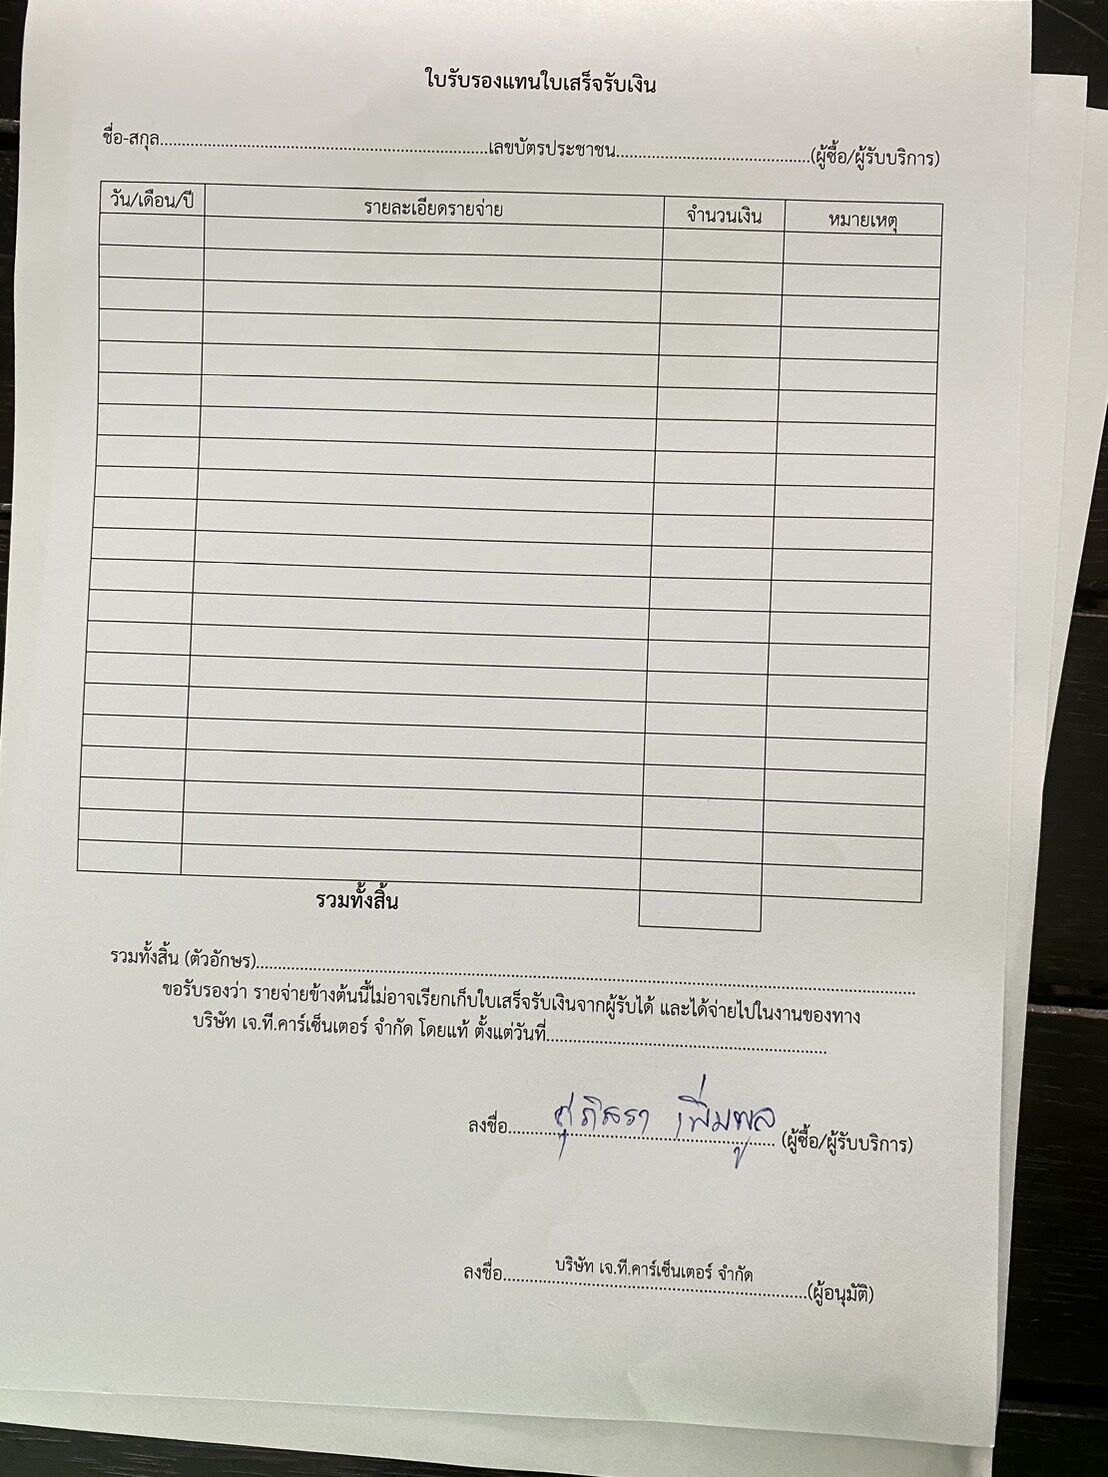 ใบรับรองแทนใบเสร็จรับเงิน
ชื่อ-สกุล................................................................เลขบัตรประชาชน......................................(ผู้ซื้อ/ผู้รับบริการ)
วัน/เดือน/ปี รายละเอียดรายจ่าย จำนวนเงิน หมายเหตุ
รวมทั้งสิ้น
รวมทั้งสิ้น (ตัวอักษร)................................................................................................................................
ขอรับรองว่า รายจ่ายข้างต้นนี้ไม่อาจเรียกเก็บใบเสร็จรับเงินจากผู้รับได้ และได้จ่ายไปในงานของทาง
บริษัท เจ.ที.คาร์เซ็นเตอร์ จำกัด โดยแท้ ตั้งแต่วันที่.......................................................
ลงชื่อ....ศุภิสรา เพิ่มพูล....(ผู้ซื้อ/ผู้รับบริการ)
ลงชื่อ....บริษัท เจ.ที.คาร์เซ็นเตอร์ จำกัด....(ผู้อนุมัติ)